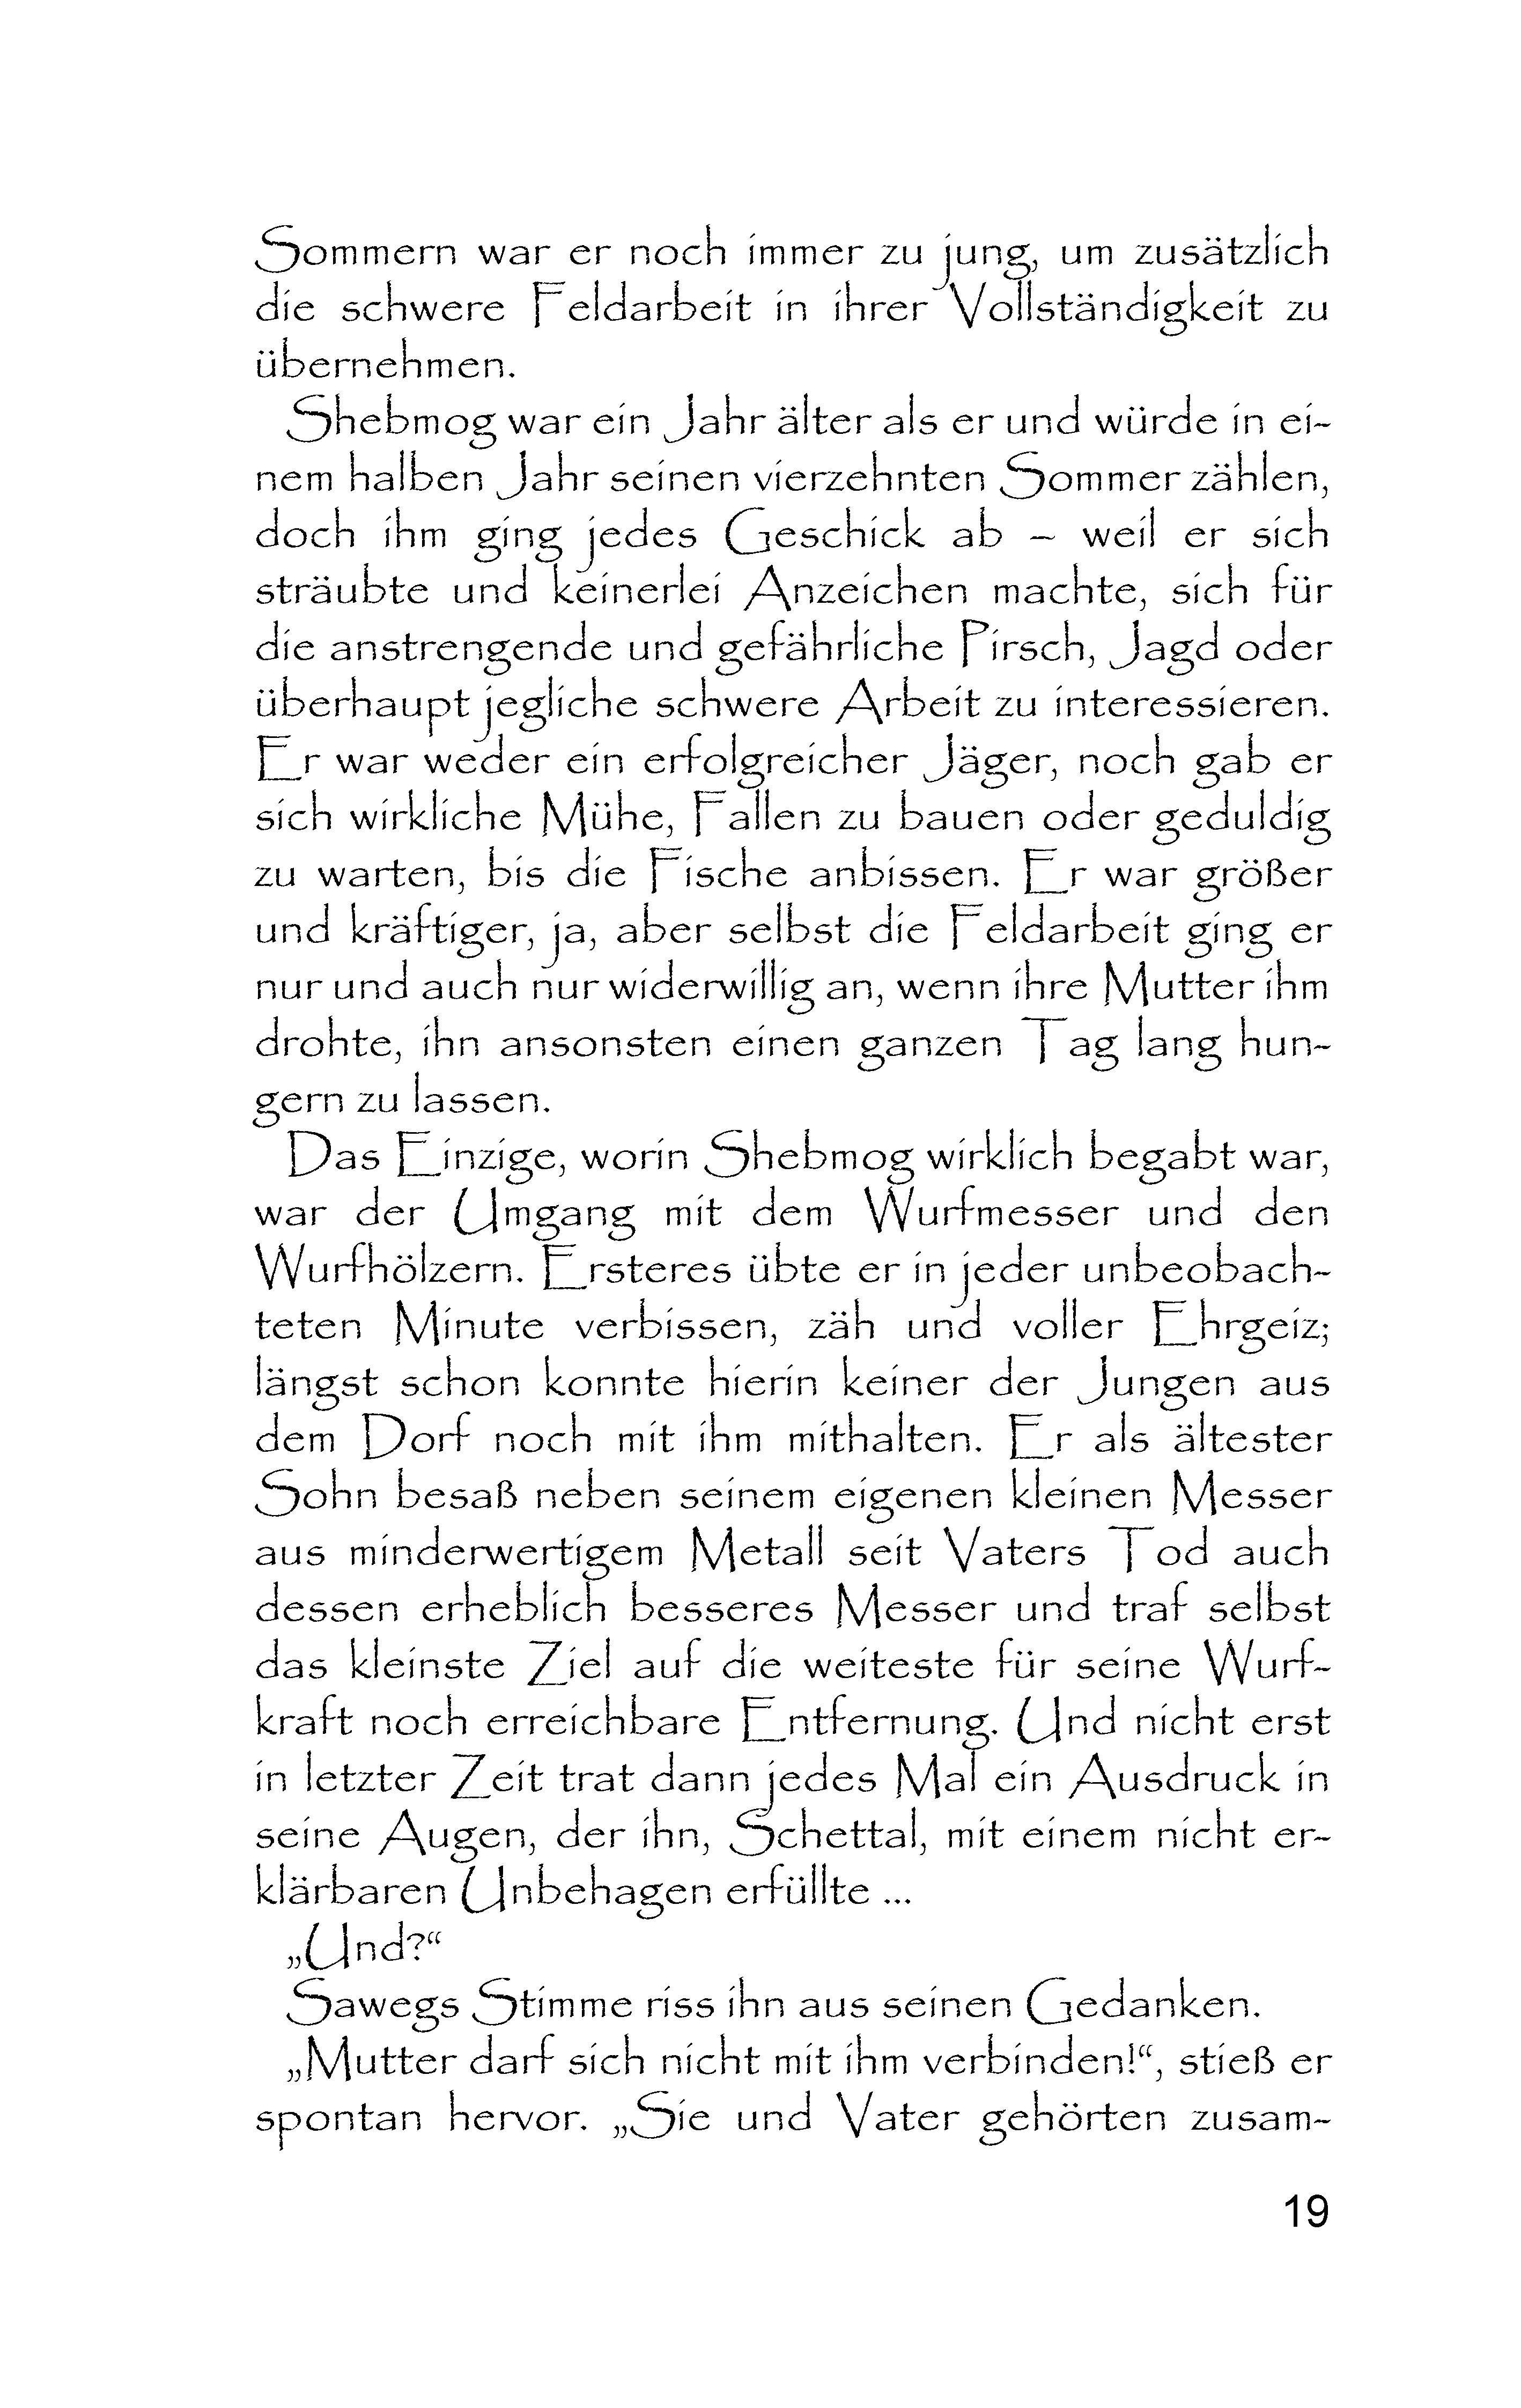 Sommern war er noch immer zu jung, um zusätzlich
die schwere Feldarbeit in ihrer Vollständigkeit zu
übernehmen.
Shebmog war ein Jahr älter als er und würde in ei-
nem halben Jahr seinen vierzehnten Sommer zählen,
doch ihm ging jedes Geschick ab – weil er sich
sträubte und keinerlei Anzeichen machte, sich für
die anstrengende und gefährliche Pirsch, Jagd oder
überhaupt jegliche schwere Arbeit zu interessieren.
Er war weder ein erfolgreicher Jäger, noch gab er
sich wirkliche Mühe, Fallen zu bauen oder geduldig
zu warten, bis die Fische anbissen. Er war größer
und kräftiger, ja, aber selbst die Feldarbeit ging er
nur und auch nur widerwillig an, wenn ihre Mutter ihm
drohte, ihn ansonsten einen ganzen Tag lang hun-
gern zu lassen.
Das Einzige, worin Shebmog wirklich begabt war,
war der Umgang mit dem Wurfmesser und den
Wurfhölzern. Ersteres übte er in jeder unbeobach-
teten Minute verbissen, zäh und voller Ehrgeiz;
längst schon konnte hierin keiner der Jungen aus
dem Dorf noch mit ihm mithalten. Er als ältester
Sohn besaß neben seinem eigenen kleinen Messer
aus minderwertigem Metall seit Vaters Tod auch
dessen erheblich besseres Messer und traf selbst
das kleinste Ziel auf die weiteste für seine Wurf-
kraft noch erreichbare Entfernung. Und nicht erst
in letzter Zeit trat dann jedes Mal ein Ausdruck in
seine Augen, der ihn, Schettal, mit einem nicht er-
klärbaren Unbehagen erfüllte ...
„Und?“
Sawegs Stimme riss ihn aus seinen Gedanken.
„Mutter darf sich nicht mit ihm verbinden!“, stieß er
spontan hervor. „Sie und Vater gehörten zusam-
19